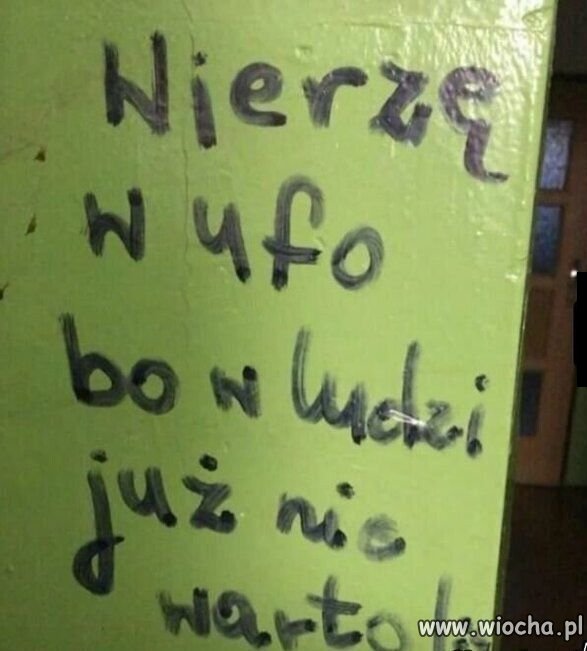 Wierzę
w ufo
bo w ludzi
już nie
warto
www.wiocha.pl